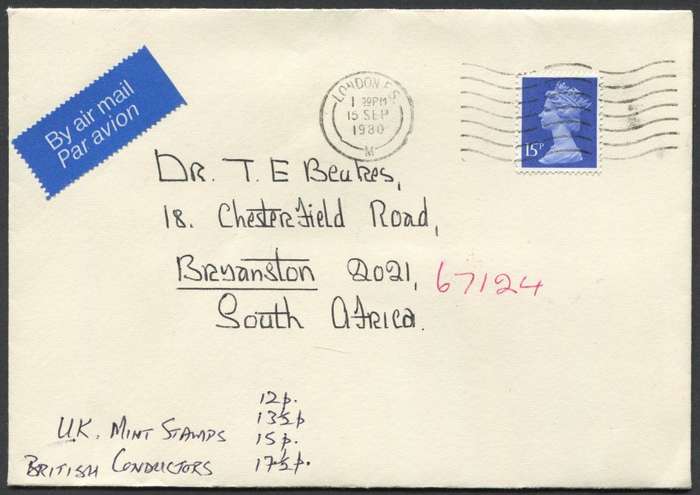 By air mail
Par avion
LONDON F.S.
1 30PM
15 SEP
1980
M
15P
Dr. T. E Beukes,
18. Chesterfield Road,
Bryanston 2021,
67124
South Africa.
12p.
13½p
U.K. MINT STAMPS 15p.
BRITISH CONDUCTORS 17½p.